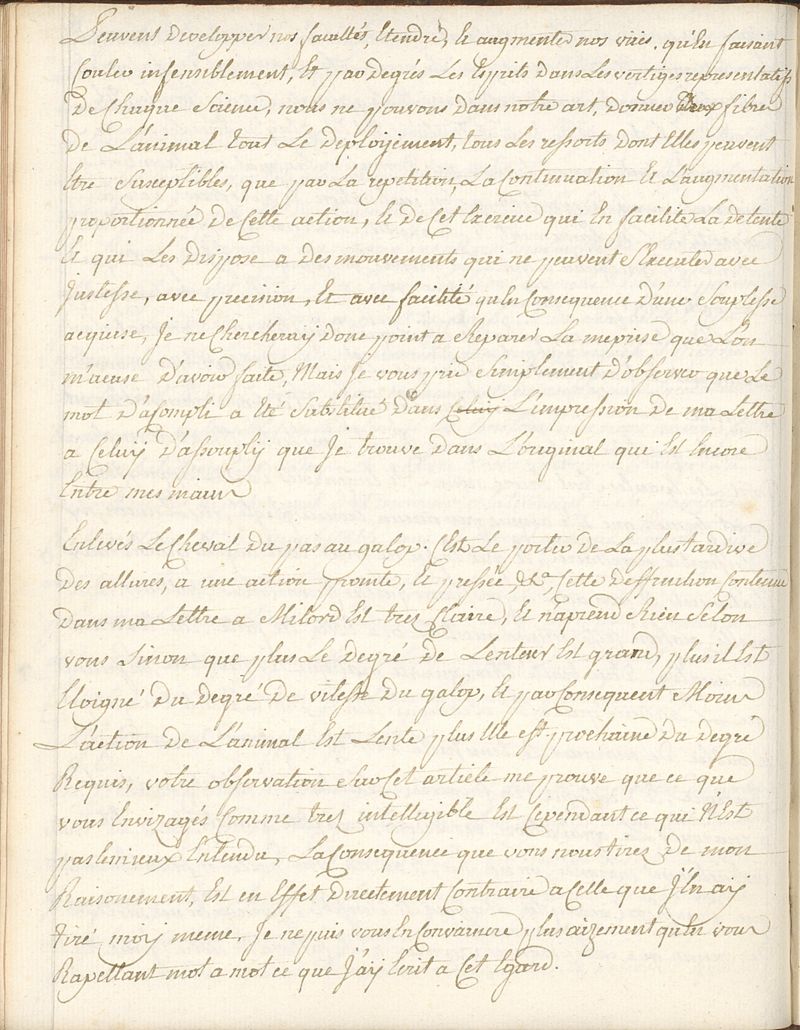 Peuvent Developper nos facultés, Etendre, & augmenter nos vües. qu'En faisant
Couler insensiblement, Et par Degrés Les Esprits Dans Les vertiges representatifs
De Chaque Science, nous ne pouvons Dans notre art, Donner aux fibres
de L'animal tout Le Deployement, tous Les ressorts dont Elles peuvent
Etre Susceptibles, que par La repetition, La Continuation Et L'augmentation
proportionnée De Cette action, & de Cet Exercice qui En facilite La detente
Et qui Les Dispose a Des mouvements qui ne peuvent S'Executer avec
Justesse, avec precision, Et avec facilité qu'En Consequence D'une Souplesse
acquise, Je ne Chercheray Donc point a Reparer La meprise que L'on
m'acuse D'avoir faite, Mais Je vous prie Simplement D'observer que Le
mot D'acompli a Eté Substitué Dans Celuy L'impression De ma Lettre
a Celuy D'assouply que Je trouve Dans L'original qui Est Encore
Entre mes mains

Enlevés Le Cheval Du pas au galop. C'Est Le porter De La plus tardive
Des allures, a une action prompte, & pressée, &a, Cette Deffinition Contenue
Dans ma Lettre a Milord Est tres Claire, Et n'aprend Rien Selon
vous Sinon que plus Le Degré De Lenteur Est grand, plus il Est
Eloigné Du Degré De vitesse Du galop, & par Consequent Moins
L'action De L'animal Est Lente plus Elle est prochaine Du Degré
Requis, votre observation Sur Cet article me prouve que ce que
vous Envizagés Comme tres intelligible Est Cependant ce qui N'Est
pas le mieux Entendu, La Consequence que vous nous tirez De mon
Raisonement, Est en Effet Directement Contraire a Celle que J'En ay
tiré moy meme, Je ne puis vous En Convaincre plus aizement qu'En vous
Rapellant mot a mot ce que J'ay Ecrit a Cet Egard.